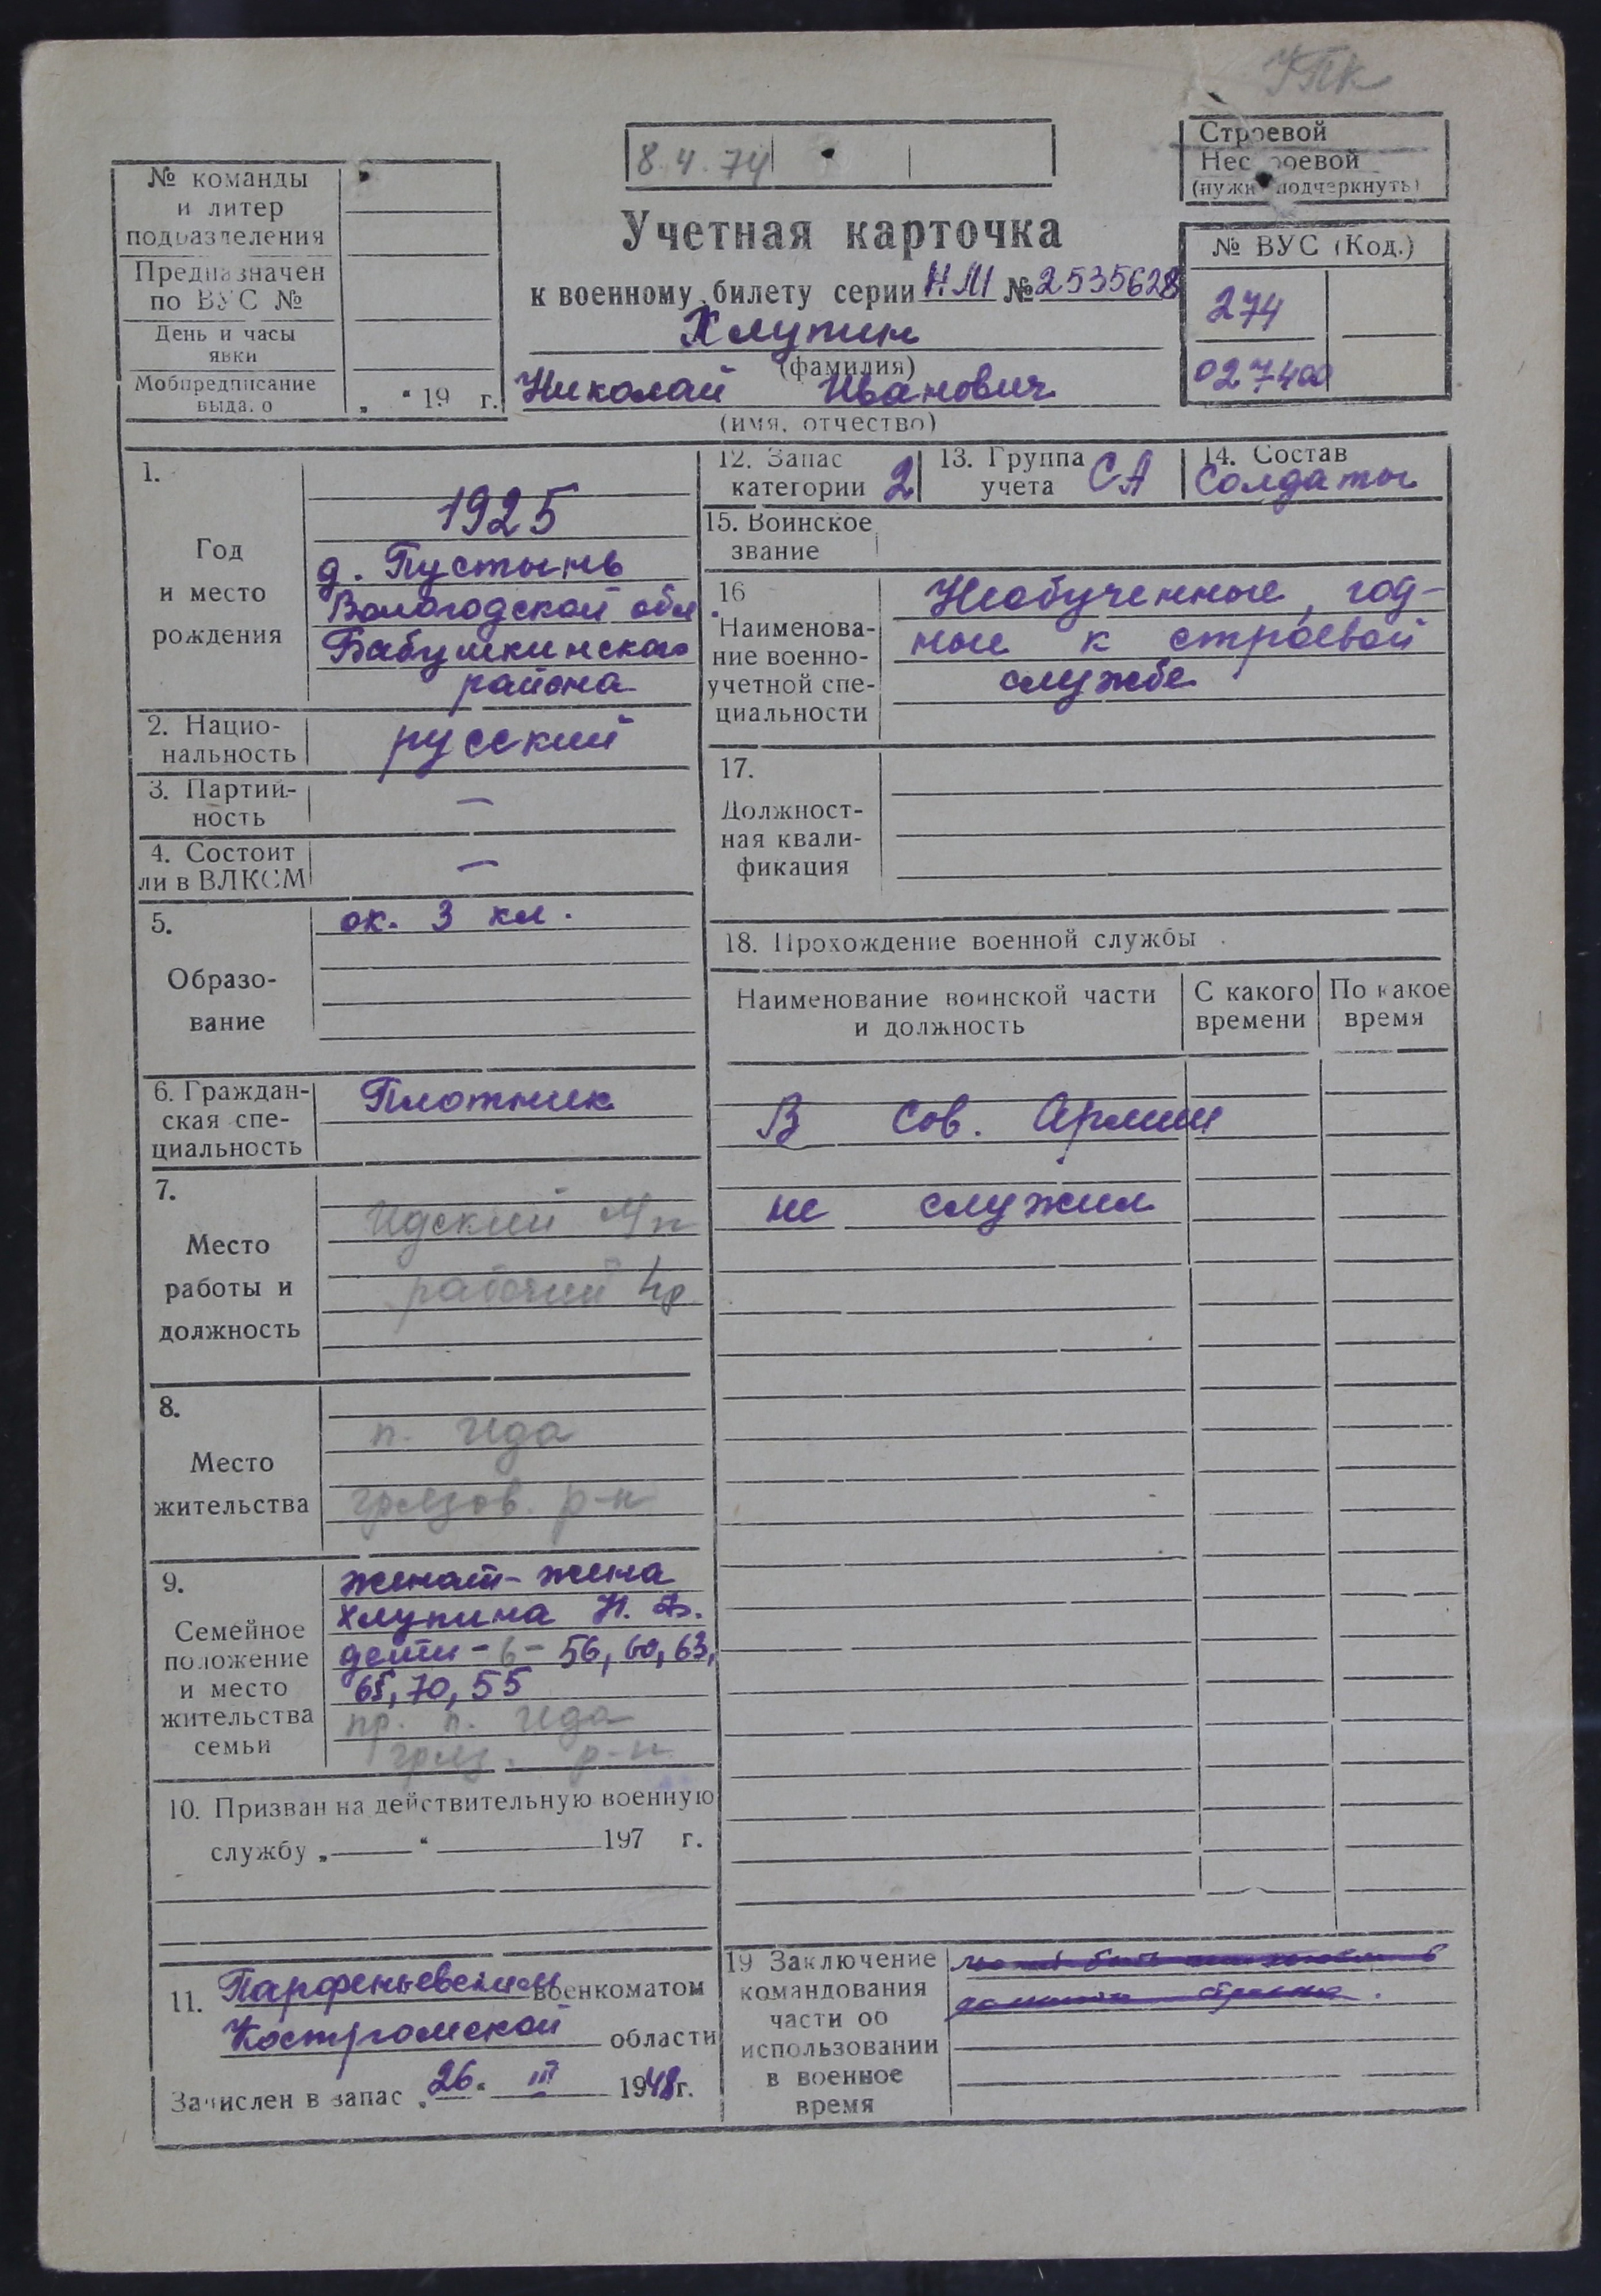 УПК
8.4.74
Строевой
Нестроевой
(нужн. подчеркнуть)
№ команды
и литер
подразделения
Предназначен
по ВУС №
День и часы
явки
Мобпредписание
выдано
„ “ 19 г.
Учетная карточка
к военному билету серии НМ № 2535628
Хлупин
(фамилия)
Николай Иванович
(имя, отчество)
№ ВУС (Код.)
274
027400
1.
Год
и место
рождения
1925
д. Пустынь
Вологодской обл
Бабушкинского
района
2. Нацио-
нальность
русский
3. Партий-
ность
—
4. Состоит
ли в ВЛКСМ
—
5.
Образо-
вание
ок. 3 кл.
6. Граждан-
ская спе-
циальность
Плотник
7.
Место
работы и
должность
Идский
рабочий
8.
Место
жительства
п. Ида
грязов. р-н
9.
Семейное
положение
и место
жительства
семьи
женат - жена
Хлупина Н. Ф.
дети - 6 - 56, 60, 63,
65, 70, 55
пр. п. Ида
гряз. р-н
10. Призван на действительную военную
службу „ “ 197 г.
11. Парфеньевским военкоматом
Костромской области
Зачислен в запас „26“ III 1948г.
12. Запас
категории 2
13. Группа
учета СА
14. Состав
Солдаты
15. Воинское
звание
16
Наименова-
ние военно-
учетной спе-
циальности
Необученные, год-
ные к строевой
службе
17.
Должност-
ная квали-
фикация
18. Прохождение военной службы
Наименование воинской части
и должность
С какого
времени
По какое
время
В Сов. Армии
не служил
19 Заключение
командования
части об
использовании
в военное
время